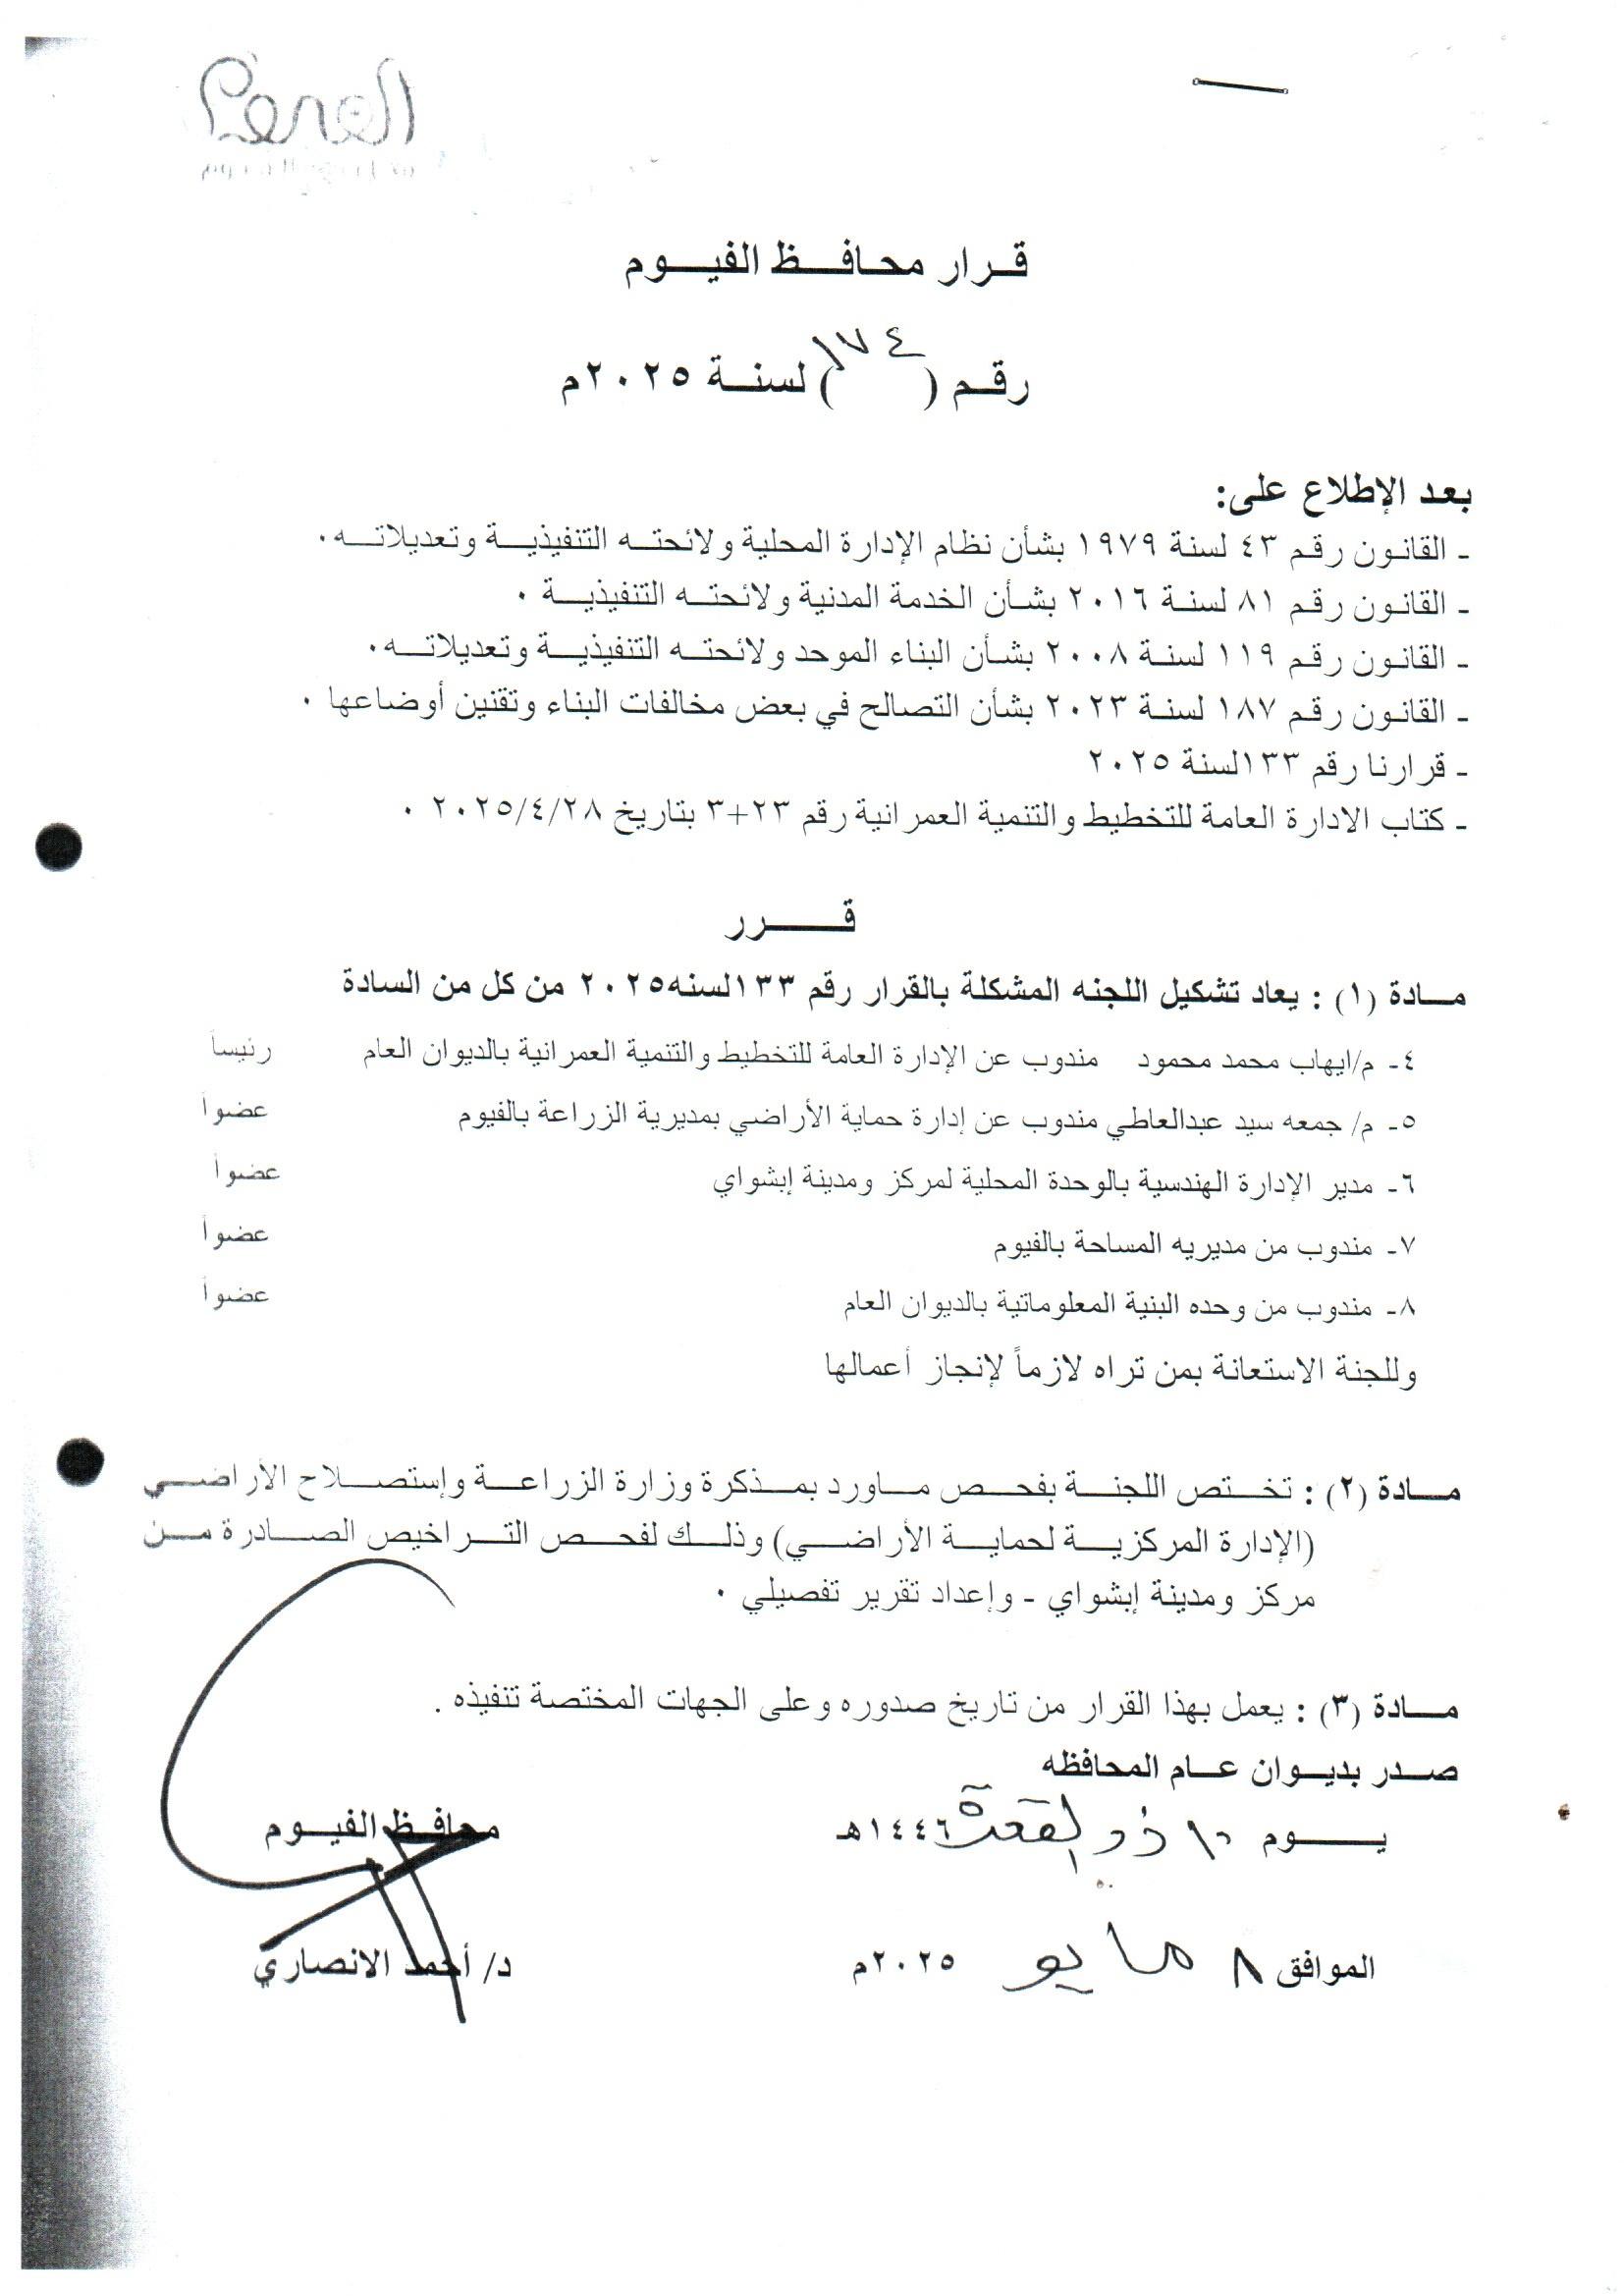 قرار محافظ الفيوم
رقم (١٧٤) لسنة ٢٠٢٥م
بعد الإطلاع على:
- القانون رقم ٤٣ لسنة ١٩٧٩ بشأن نظام الإدارة المحلية ولائحته التنفيذية وتعديلاته.
- القانون رقم ٨١ لسنة ٢٠١٦ بشأن الخدمة المدنية ولائحته التنفيذية .
- القانون رقم ١١٩ لسنة ٢٠٠٨ بشأن البناء الموحد ولائحته التنفيذية وتعديلاته.
- القانون رقم ١٨٧ لسنة ٢٠٢٣ بشأن التصالح في بعض مخالفات البناء وتقنين أوضاعها .
- قرارنا رقم ١٣٣لسنة ٢٠٢٥
- كتاب الادارة العامة للتخطيط والتنمية العمرانية رقم ٢٣+٣ بتاريخ ٢٠٢٥/٤/٢٨ .
قرر
مادة (١) : يعاد تشكيل اللجنه المشكلة بالقرار رقم ١٣٣لسنه٢٠٢٥ من كل من السادة
٤- م/ايهاب محمد محمود مندوب عن الإدارة العامة للتخطيط والتنمية العمرانية بالديوان العام رئيساً
٥- م/ جمعه سيد عبدالعاطي مندوب عن إدارة حماية الأراضي بمديرية الزراعة بالفيوم عضواً
٦- مدير الإدارة الهندسية بالوحدة المحلية لمركز ومدينة إبشواي عضواً
٧- مندوب من مديريه المساحة بالفيوم عضواً
٨- مندوب من وحده البنية المعلوماتية بالديوان العام عضواً
وللجنة الاستعانة بمن تراه لازماً لإنجاز أعمالها
مادة (٢) : تختص اللجنة بفحص ماورد بمذكرة وزارة الزراعة وإستصلاح الأراضي
(الإدارة المركزية لحماية الأراضي) وذلك لفحص التراخيص الصادرة من
مركز ومدينة إبشواي - وإعداد تقرير تفصيلي .
مادة (٣) : يعمل بهذا القرار من تاريخ صدوره وعلى الجهات المختصة تنفيذه .
صدر بديوان عام المحافظه
يوم ١٠ ذو القعدة ١٤٤٦هـ
محافظ الفيوم
الموافق ٨ مايو ٢٠٢٥م
د/ أحمد الانصاري